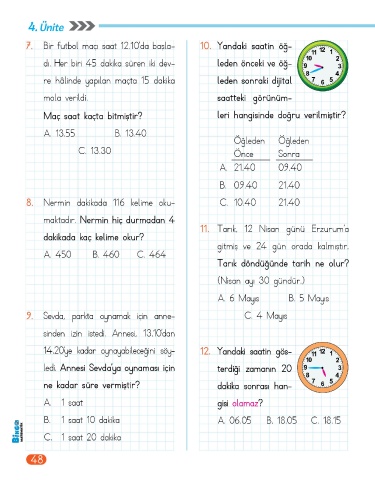 4. Ünite
7. Bir futbol maçı saat 12.10'da başla-
dı. Her biri 45 dakika süren iki dev-
re hâlinde yapılan maçta 15 dakika
mola verildi.
Maç saat kaçta bitmiştir?
A. 13.55 B. 13.40
C. 13.30
8. Nermin dakikada 116 kelime oku-
maktadır. Nermin hiç durmadan 4
dakikada kaç kelime okur?
A. 450 B. 460 C. 464
9. Sevda, parkta oynamak için anne-
sinden izin istedi. Annesi, 13.10'dan
14.20'ye kadar oynayabileceğini söy-
ledi. Annesi Sevda'ya oynaması için
ne kadar süre vermiştir?
A. 1 saat
B. 1 saat 10 dakika
C. 1 saat 20 dakika
10. Yandaki saatin öğ-
leden önceki ve öğ-
leden sonraki dijital
saatteki görünüm-
leri hangisinde doğru verilmiştir?
12 1 2 3 4 5 6 7 8 9 10 11
Öğleden Öğleden
Önce Sonra
A. 21.40 09.40
B. 09.40 21.40
C. 10.40 21.40
11. Tarık, 12 Nisan günü Erzurum'a
gitmiş ve 24 gün orada kalmıştır.
Tarık döndüğünde tarih ne olur?
(Nisan ayı 30 gündür.)
A. 6 Mayıs B. 5 Mayıs
C. 4 Mayıs
12. Yandaki saatin gös-
terdiği zamanın 20
dakika sonrası han-
gisi olamaz?
12 1 2 3 4 5 6 7 8 9 10 11
A. 06.05 B. 18.05 C. 18.15
48